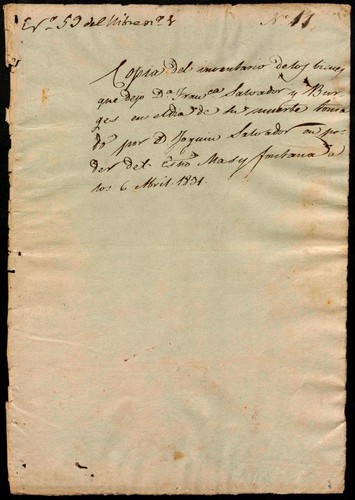 Nº 11
Eⁿ 59 del llibre nº 1
Copia del inventario de los bienes
que dejo Dª Franᶜᵃ Salvador y Bur
ges en el dia de su muerte toma
do por D. Joquin Salvador en po
der del Esnº Mas y fontana a
los 6 Abril 1831.